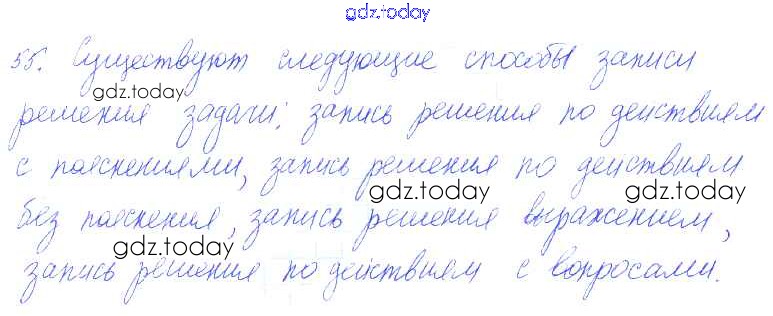 gdz.today
55. Существуют следующие способы записи
gdz.today
решения задачи: запись решения по действиям
с пояснениями, запись решения по действиям
gdz.today gdz.today
без пояснения, запись решения выражением,
gdz.today
запись решения по действиям с вопросами.